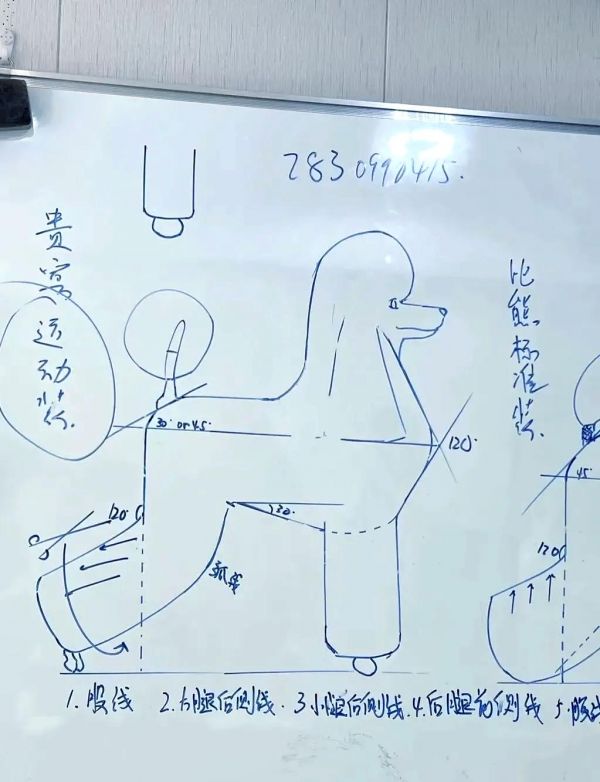 2830990415.
贵宾运动装.
比熊标准装.
30° or 45°
120°
120°
30°
弧线
45°
120
1. 股线 2. 大腿后侧线. 3 小腿后侧线. 4. 后腿前侧线 5. 腹线